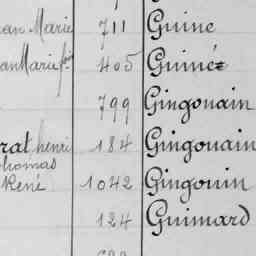 ean Marie 711 Guine
ean Marie fois 405 Guiné
799 Gingouain
rat henri 184 Gingouain
thomas
René 1042 Gingouin
124 Guimard